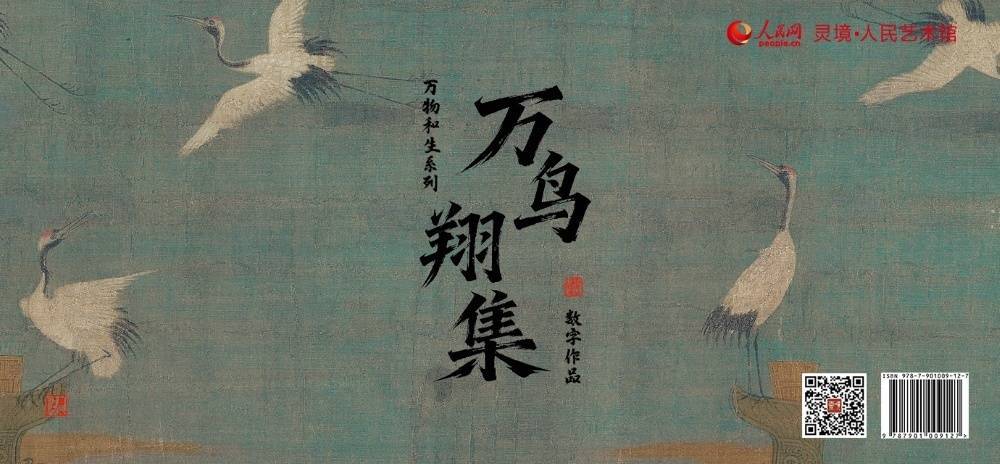 人民网
people.cn
灵境·人民艺术馆
万物和生系列
万鸟翔集
数字作品
ISBN 978-7-901009-12-7
9 787901 009127 >